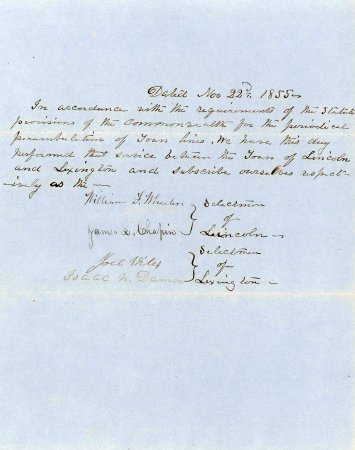 Dated Nov 22nd 1855
In accordance with the requirements of the Statute
provisions of the Commonwealth for the periodical
perambulation of Town lines. We have this day
performed that service between the Town of Lincoln
and Lexington and subscribe ourselves respect-
ively as the —
William F. Wheeler } Selectmen
of
James L. Chapin } Lincoln —
Joel Viles } Selectmen
of
Isaac N. Damon } Lexington —